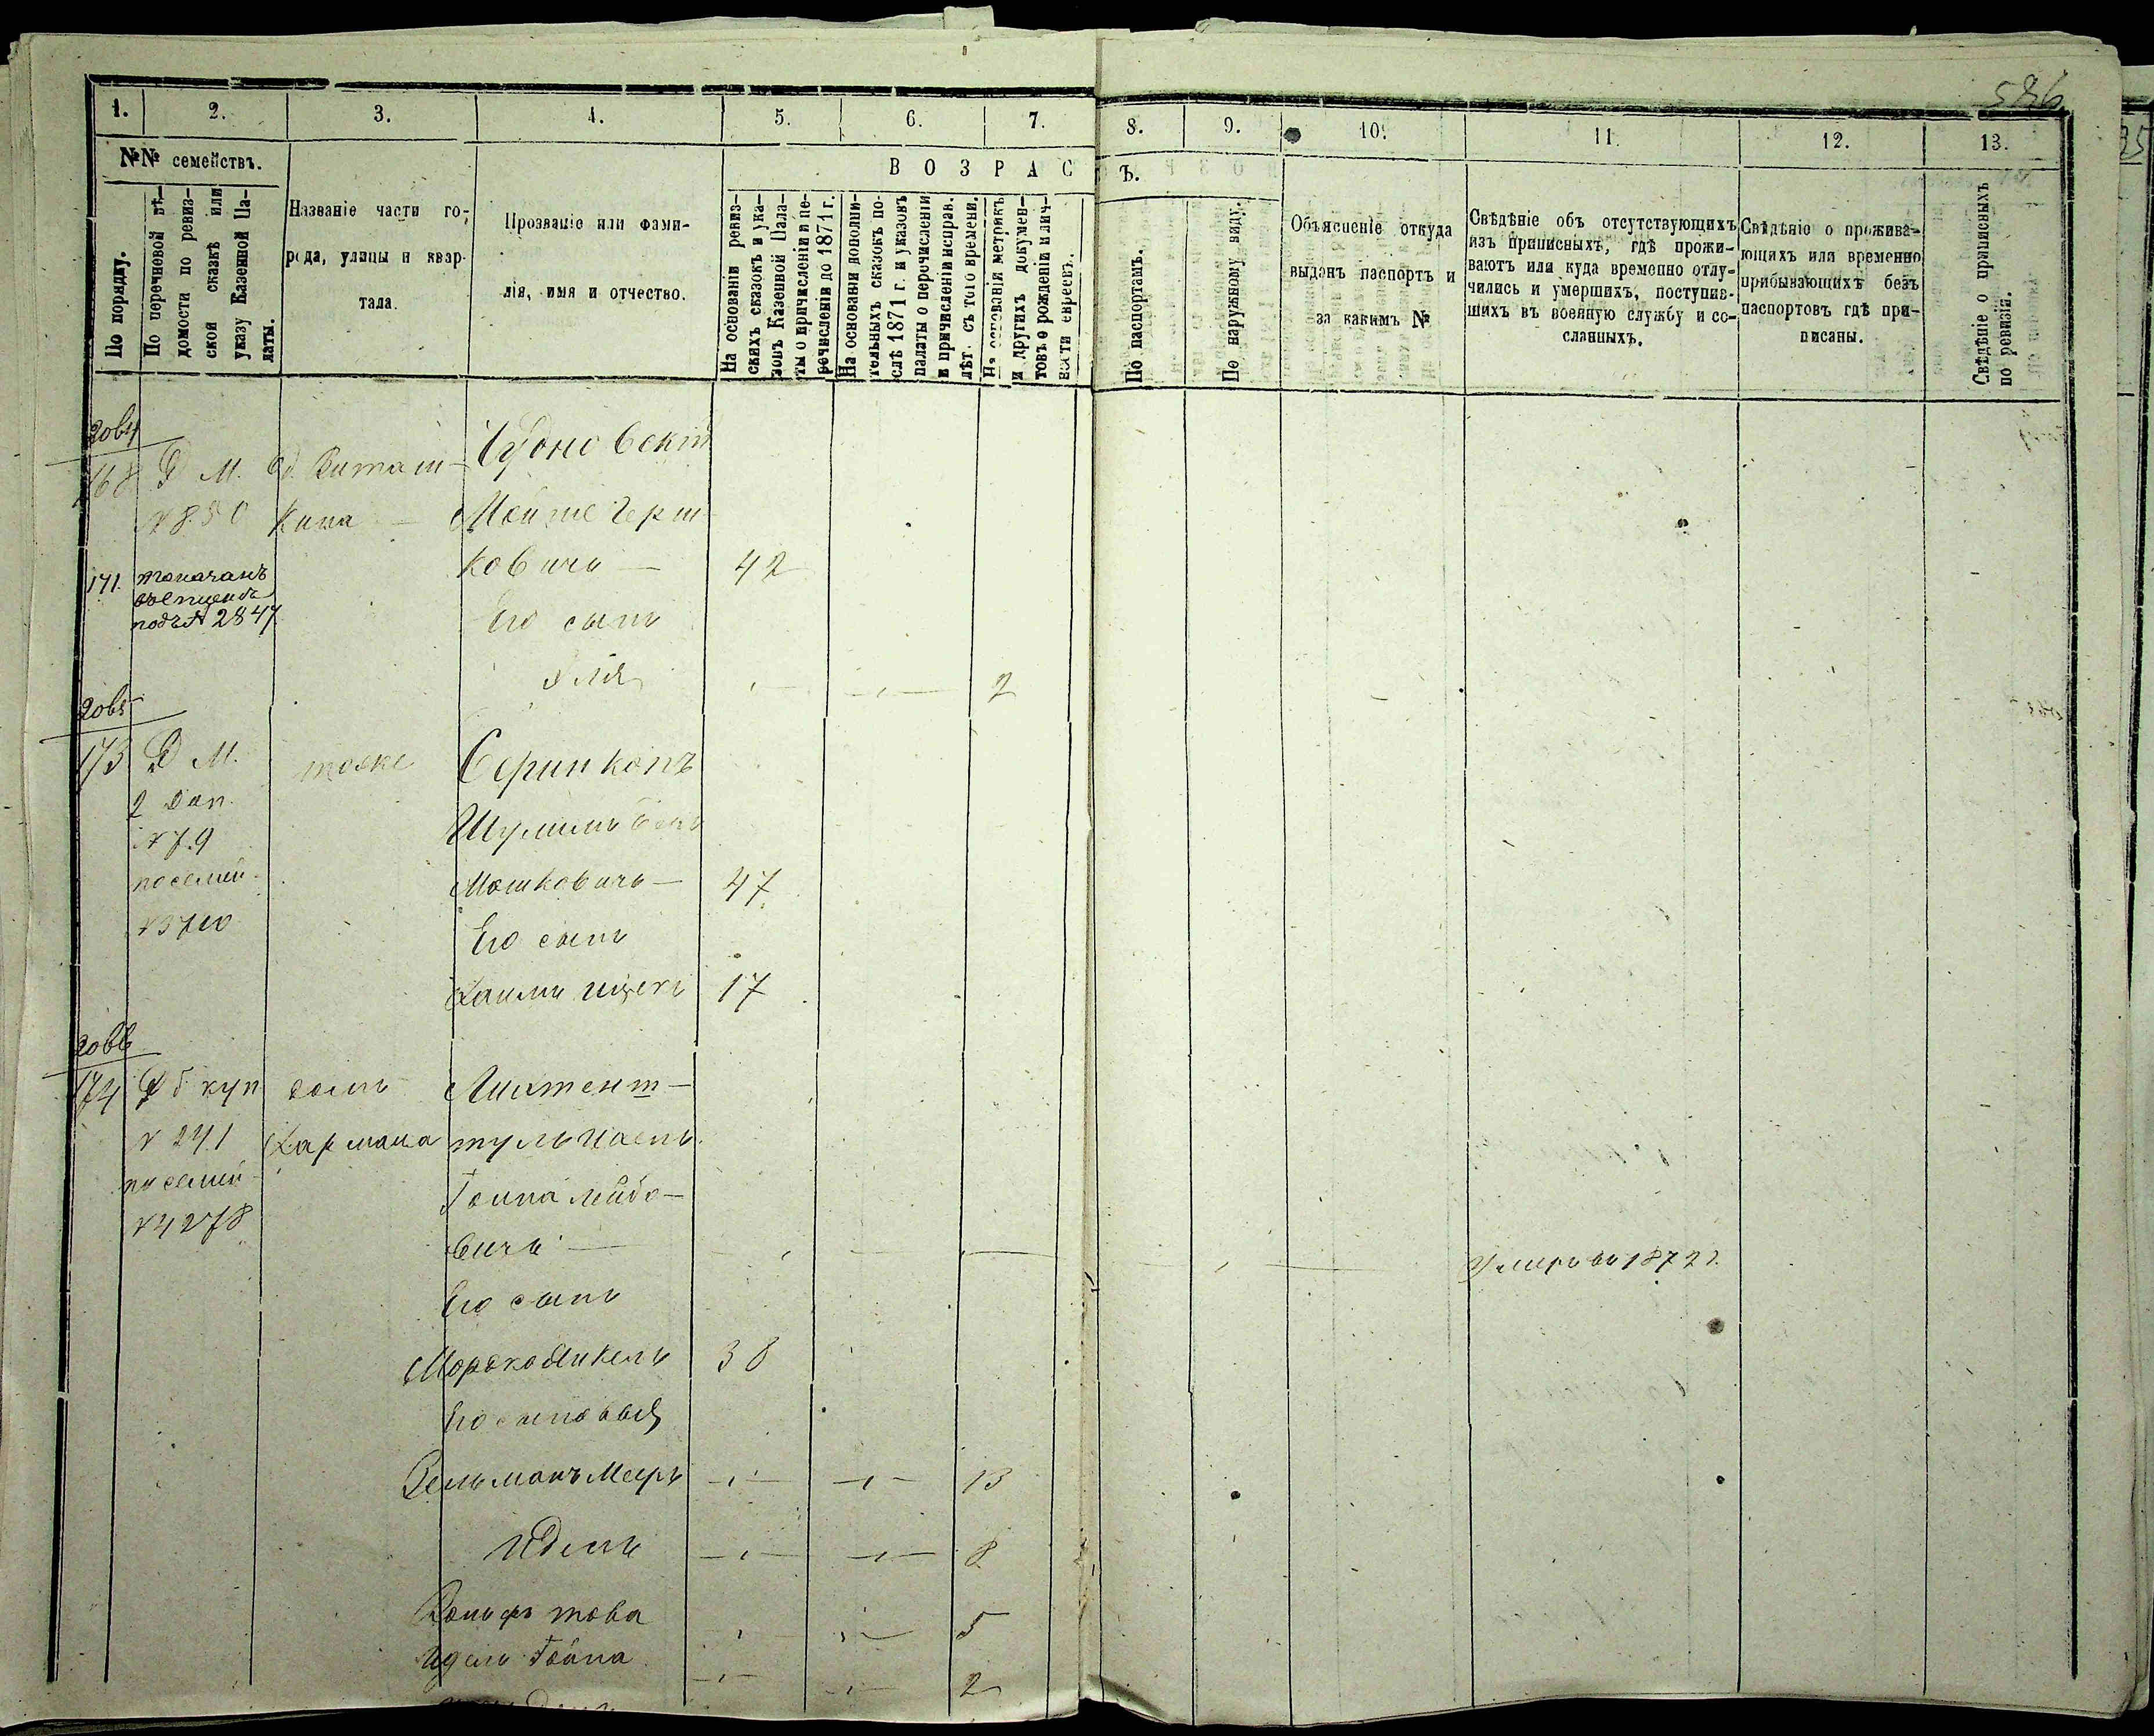 586
1. 2. 3. 4. 5. 6. 7. 8. 9. 10. 11. 12. 13.
№№ семействъ.
По порядку.
По перечневой вѣ-
домости по ревиз-
ской сказкѣ или
указу Казенной Па-
латы.
Названіе части го-
рода, улицы и квар-
тала.
Прозваніе или фами-
лія, имя и отчество.
ВОЗРАС
Ъ.
На основаніи ревиз-
скихъ сказокъ и ука-
зовъ Казенной Пала-
ты о причисленіи и пе-
речисленіи до 1871 г.
На основаніи дополни-
тельныхъ сказокъ по-
слѣ 1871 г. и указовъ
палаты о перечисленіи
и причисленіи исправ.
лѣт. съ того времени.
На основаніи метрикъ
и другихъ докумен-
товъ о рожденіи и лич-
ности евреевъ.
По паспортамъ.
По наружному виду.
Объясненіе откуда
выданъ паспортъ и
за какимъ №
Свѣдѣніе объ отсутствующихъ
изъ приписныхъ, гдѣ прожи-
ваютъ или куда временно отлу-
чились и умершихъ, поступив-
шихъ въ военную службу и со-
сланныхъ.
Свѣдѣніе о прожива-
ющихъ или временно
прибывающихъ безъ
паспортовъ гдѣ при-
писаны.
Свѣдѣніе о приписныхъ
по ревизіи.
2064
168 Д М. Чудновскій
№ 850 Кина — Мойше Герш
171. ковичъ — 42
подъ № 2847
Его сынъ
Эля 2
2065
173 Д М. тоже
2 Доп.
№ 79
посемей- Мошковичъ — 47
Его сынъ
Хаимъ Ицекъ 17
2066
174 куп домъ Лихтенш-
№ 241 Хармана
посемей- Гоина Лейбо-
№ 4278 вичъ — Умеръ въ 1872 г.
Его сынъ
Мордко 38
Его сыновья
Зельманъ Мееръ 13
Идель 8
Вольфъ това 5
Гоина 2